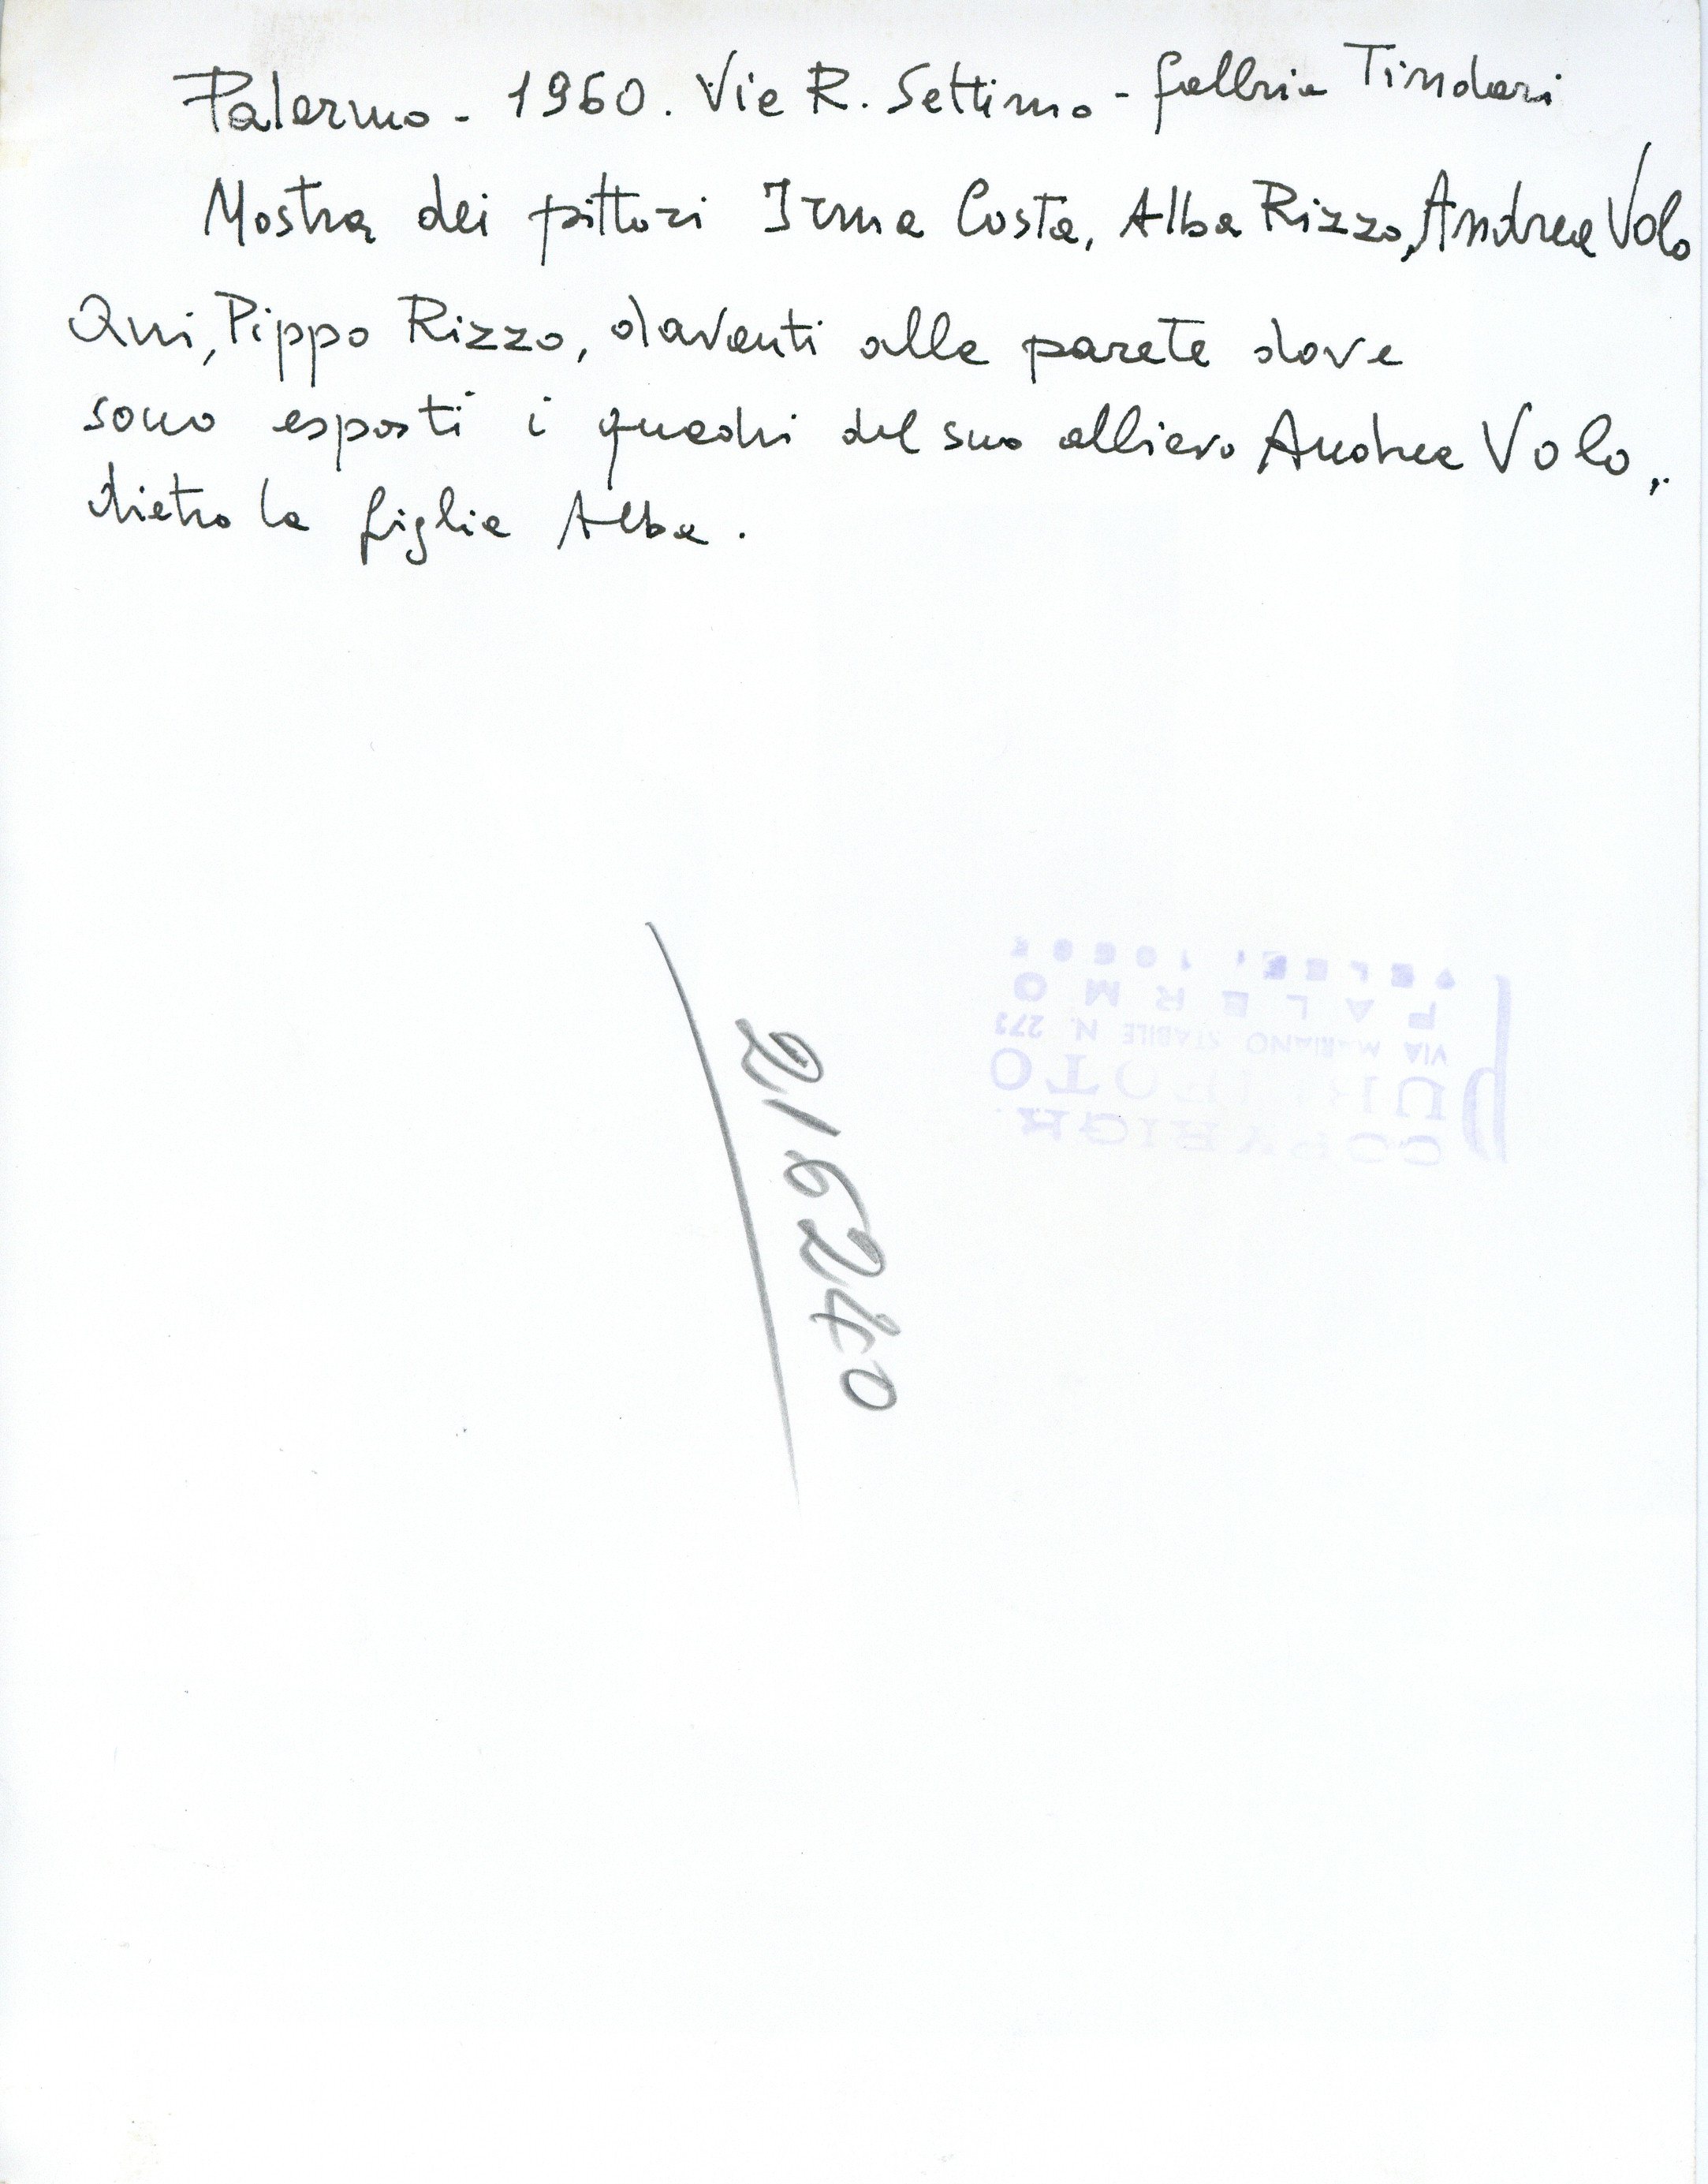 Palermo - 1960. Via R. Settimo - Galleria Tindari
Mostra dei pittori Irma Costa, Alba Rizzo, Andrea Volo
Qui, Pippo Rizzo, davanti alla parete dove
sono esposti i quadri del suo allievo Andrea Volo,
dietro la figlia Alba.
216240
COPYRIGH
FOTO
VIA MARIANO STABILE N. 273
PALERMO